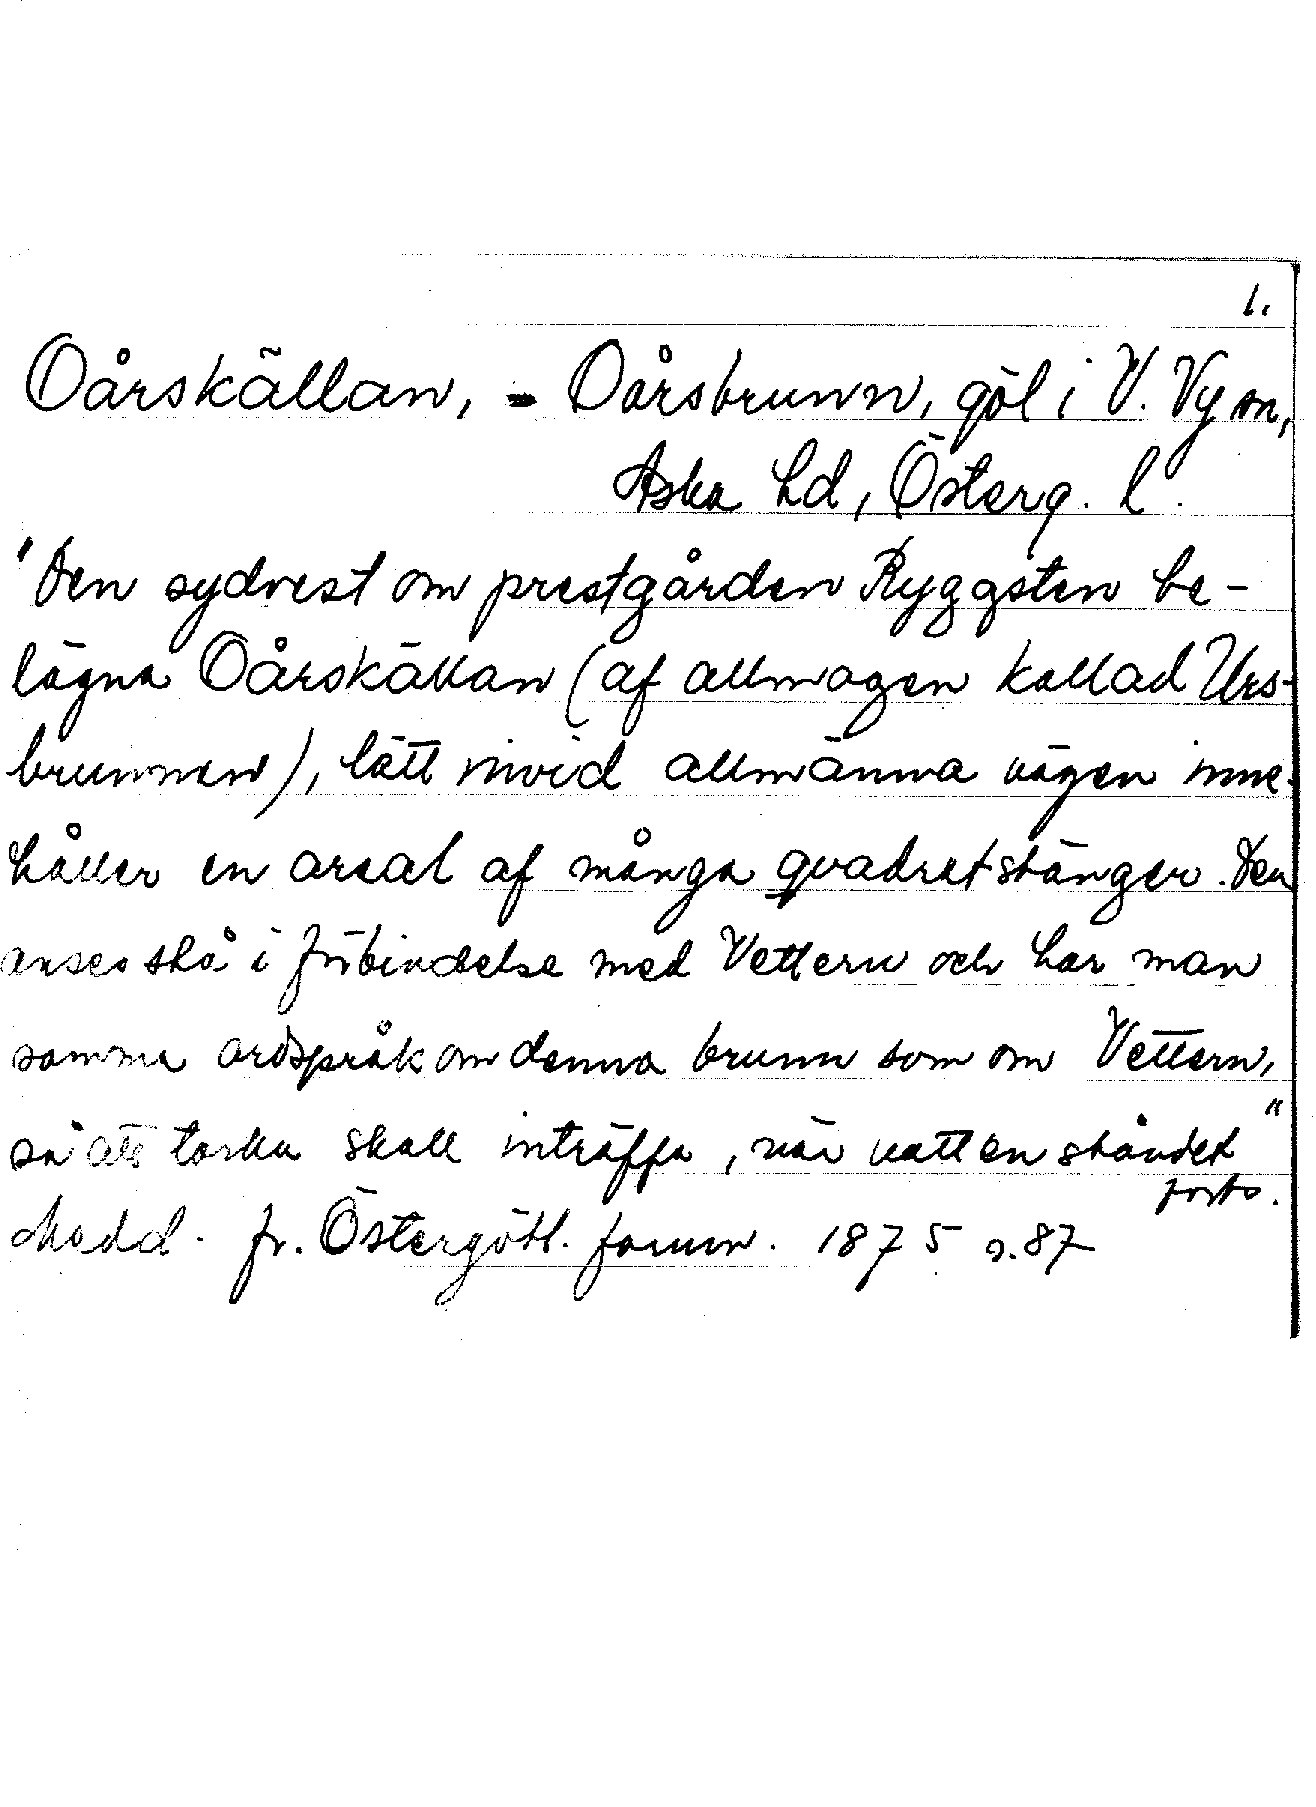 1.
Oårskällan, - Oårsbrunn, göl i V. Vy sn,
Aska hd, Österg. l.
"Den sydvest om prestgården Ryggsten be-
lägna Oårskällan (af allmogen kallad Urs-
brunnen), tätt invid allmänna vägen inne-
håller en areal af många qvadratstänger. Den
anses stå i förbindelse med Vettern och har man
samma ordspråk om denna brunn som om Vettern,
så att torka skall inträffa, när vattenståndet"
forts.
Medd. fr. Östergötl. fornm. 1875 s. 87